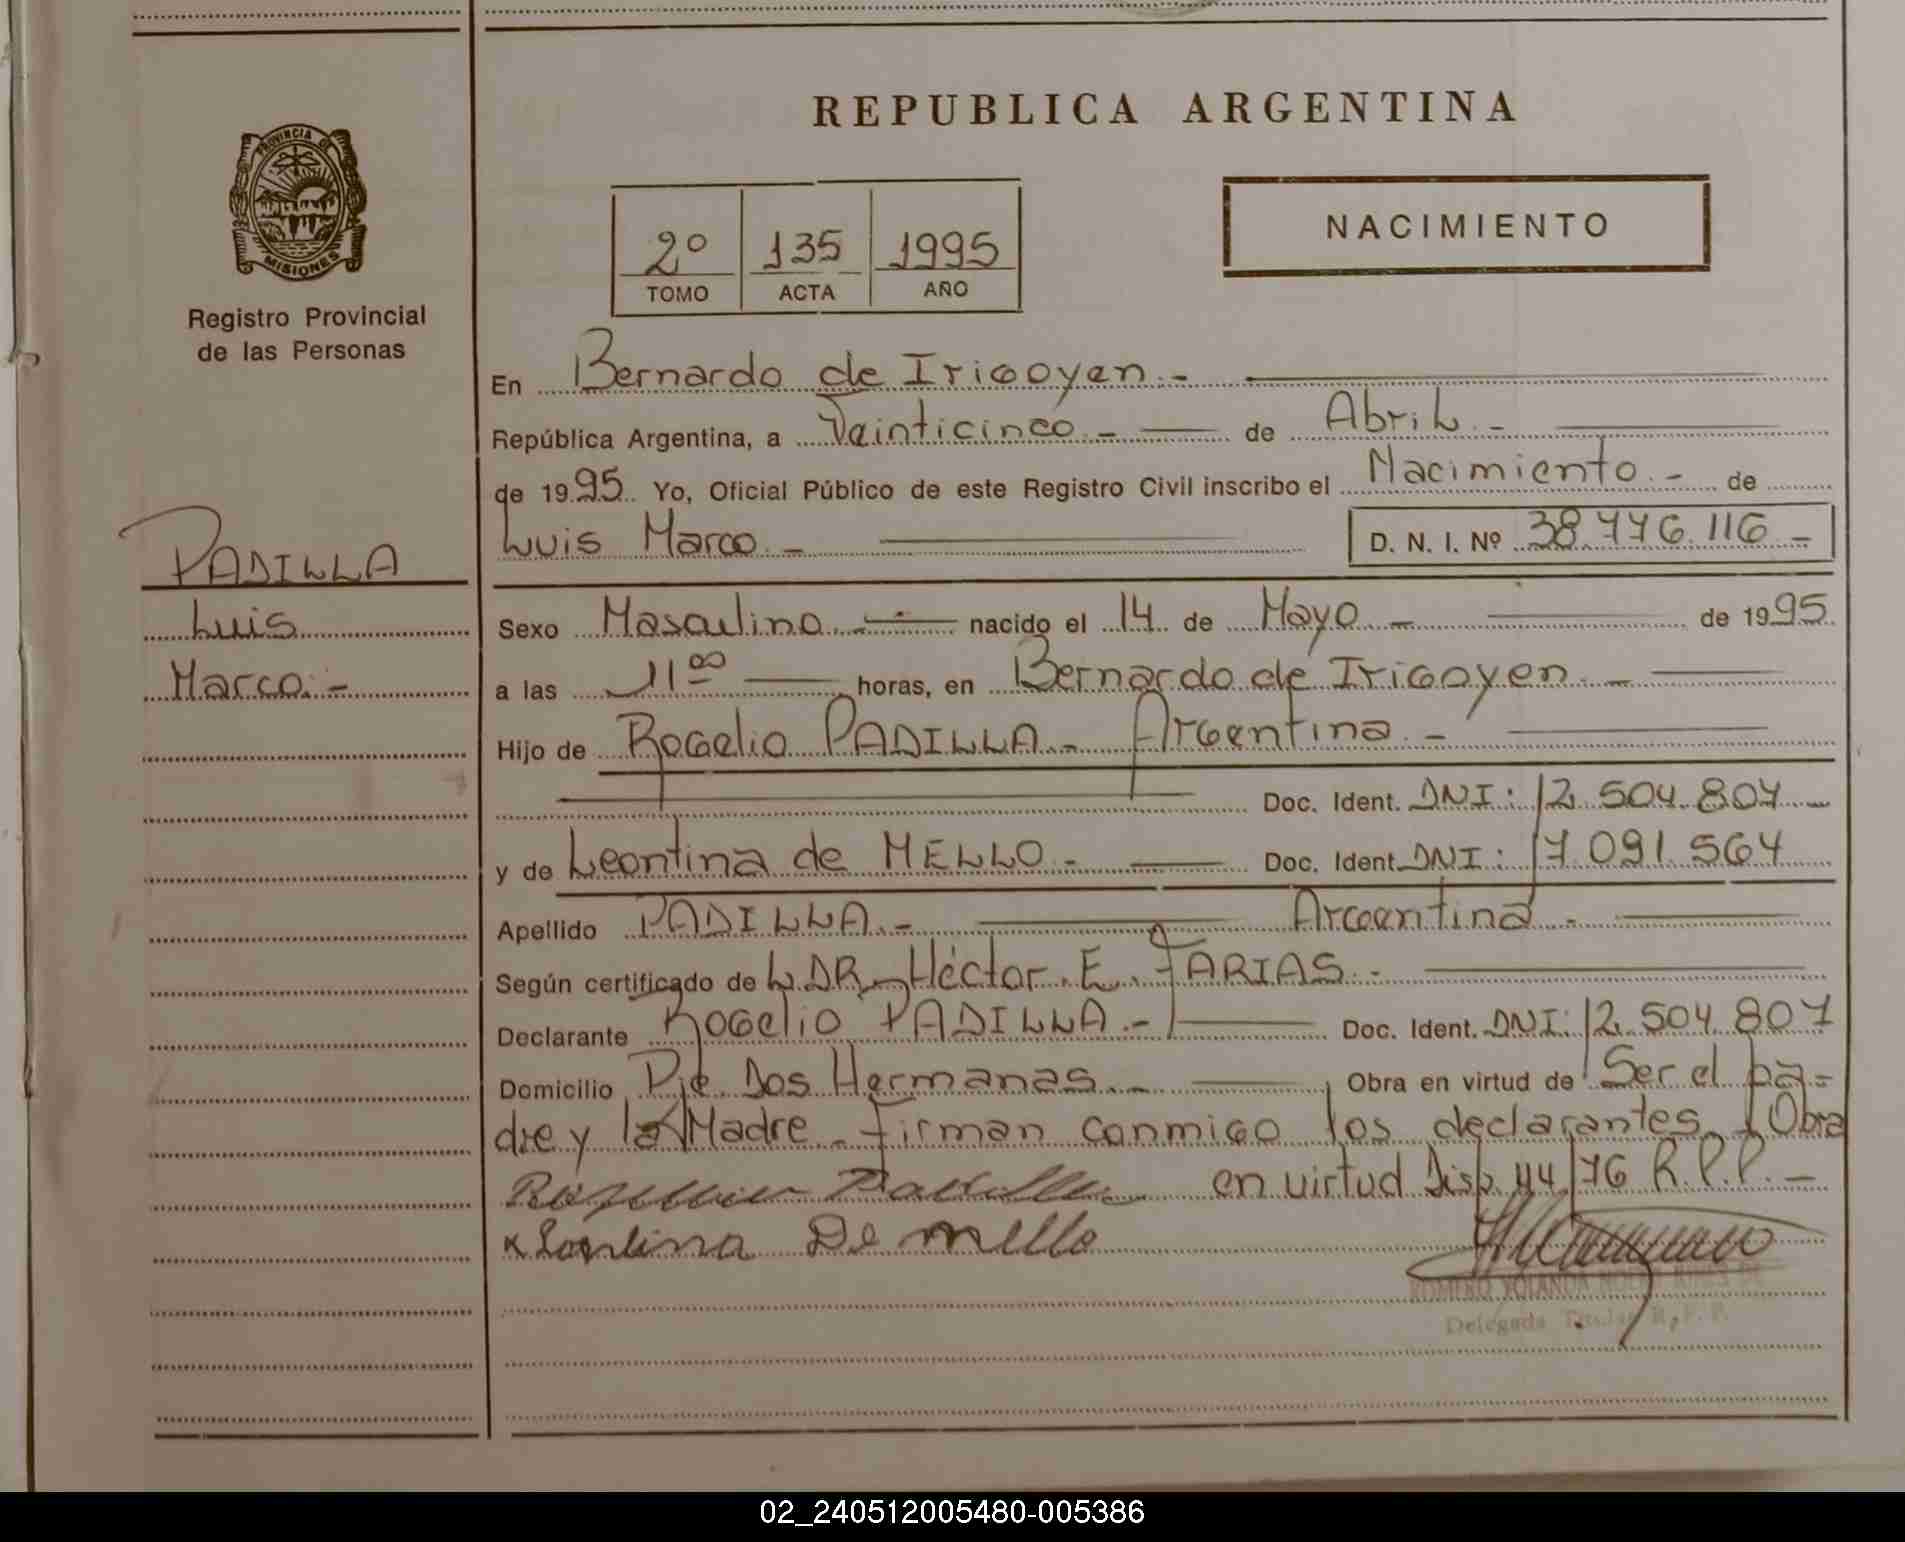 REPUBLICA ARGENTINA
PROVINCIA DE
MISIONES
Registro Provincial
de las Personas
2º 135 1995
TOMO ACTA AÑO
NACIMIENTO
En Bernardo de Irigoyen.-
República Argentina, a Veinticinco.- de Abril.-
de 1995. Yo, Oficial Público de este Registro Civil inscribo el Nacimiento.- de
Luis Marco.- D. N. I. Nº 38.776.116-
PADILLA
Luis
Marco.-
Sexo Masculino.- nacido el 14 de Mayo.- de 1995.
a las 11ºº horas, en Bernardo de Irigoyen.-
Hijo de Rogelio PADILLA.- Argentina.-
Doc. Ident. DNI: 12.504.807.-
y de Leontina de MELLO.- Doc. Ident. DNI: 17.091.564
Apellido PADILLA.- Argentina.-
Según certificado de L.DR-Héctor.E. FARIAS.-
Declarante Rogelio PADILLA.- Doc. Ident. DNI: 12.504.807
Domicilio Pje. Dos Hermanas.- Obra en virtud de Ser el pa-
dre y la Madre- Firman conmigo los declarantes. Obra
en virtud Disp. 44/76 R.P.P.-
Leontina De mello
ROMERO YOLANDA
Delegada Titular R. P. P.
02_240512005480-005386